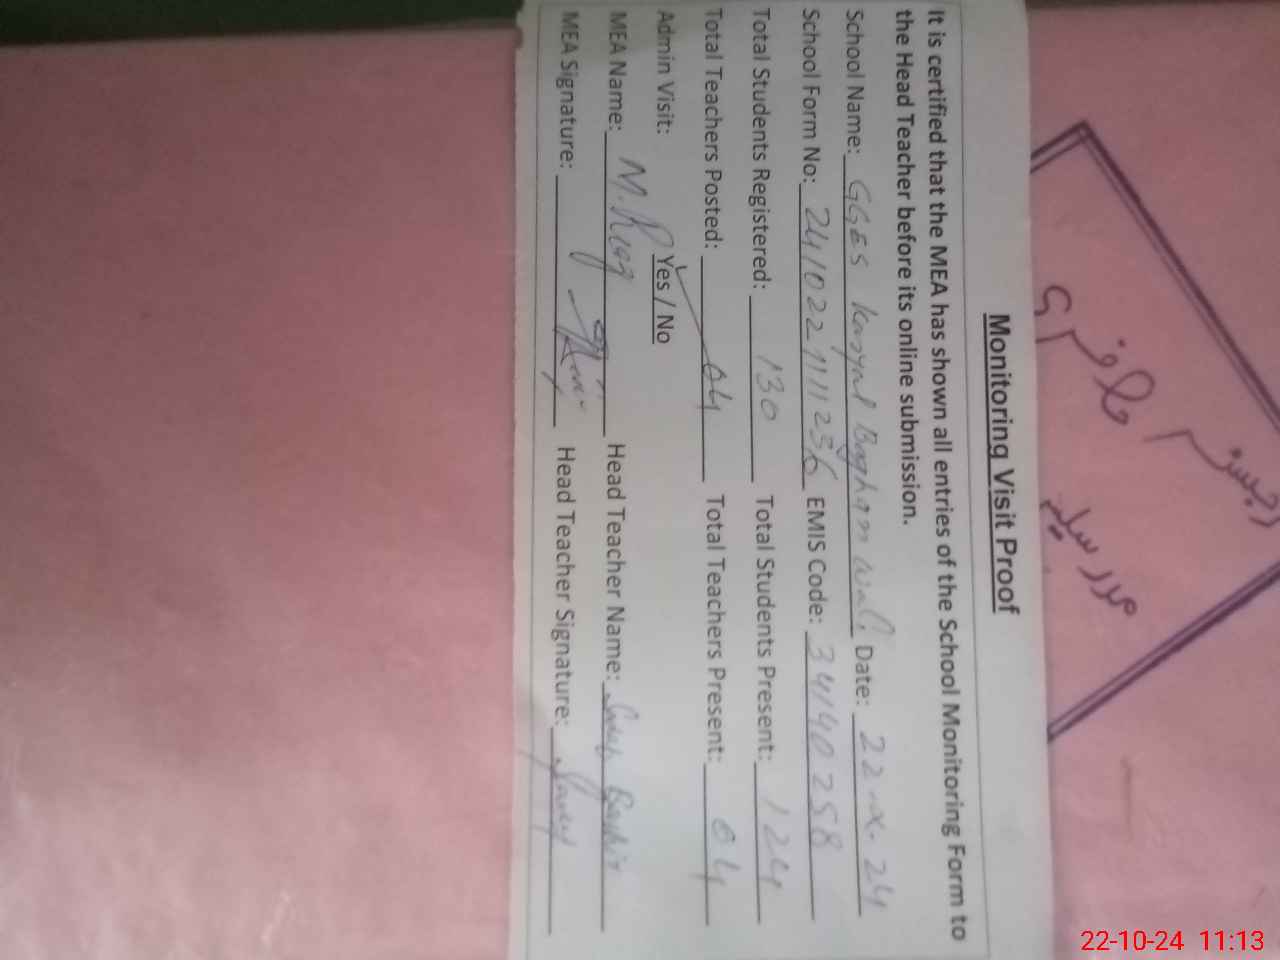 Monitoring Visit Proof
It is certified that the MEA has shown all entries of the School Monitoring Form to
the Head Teacher before its online submission.
School Name: GGES Date: 22-x-24
School Form No: EMIS Code: 34140258
Total Students Registered: 130 Total Students Present: 124
Total Teachers Posted: 04 Total Teachers Present: 04
Admin Visit: Yes / No
MEA Name: M. Riaz Head Teacher Name:
MEA Signature: Head Teacher Signature:
رجسٹر حاضری
مدرسین
22-10-24 11:13